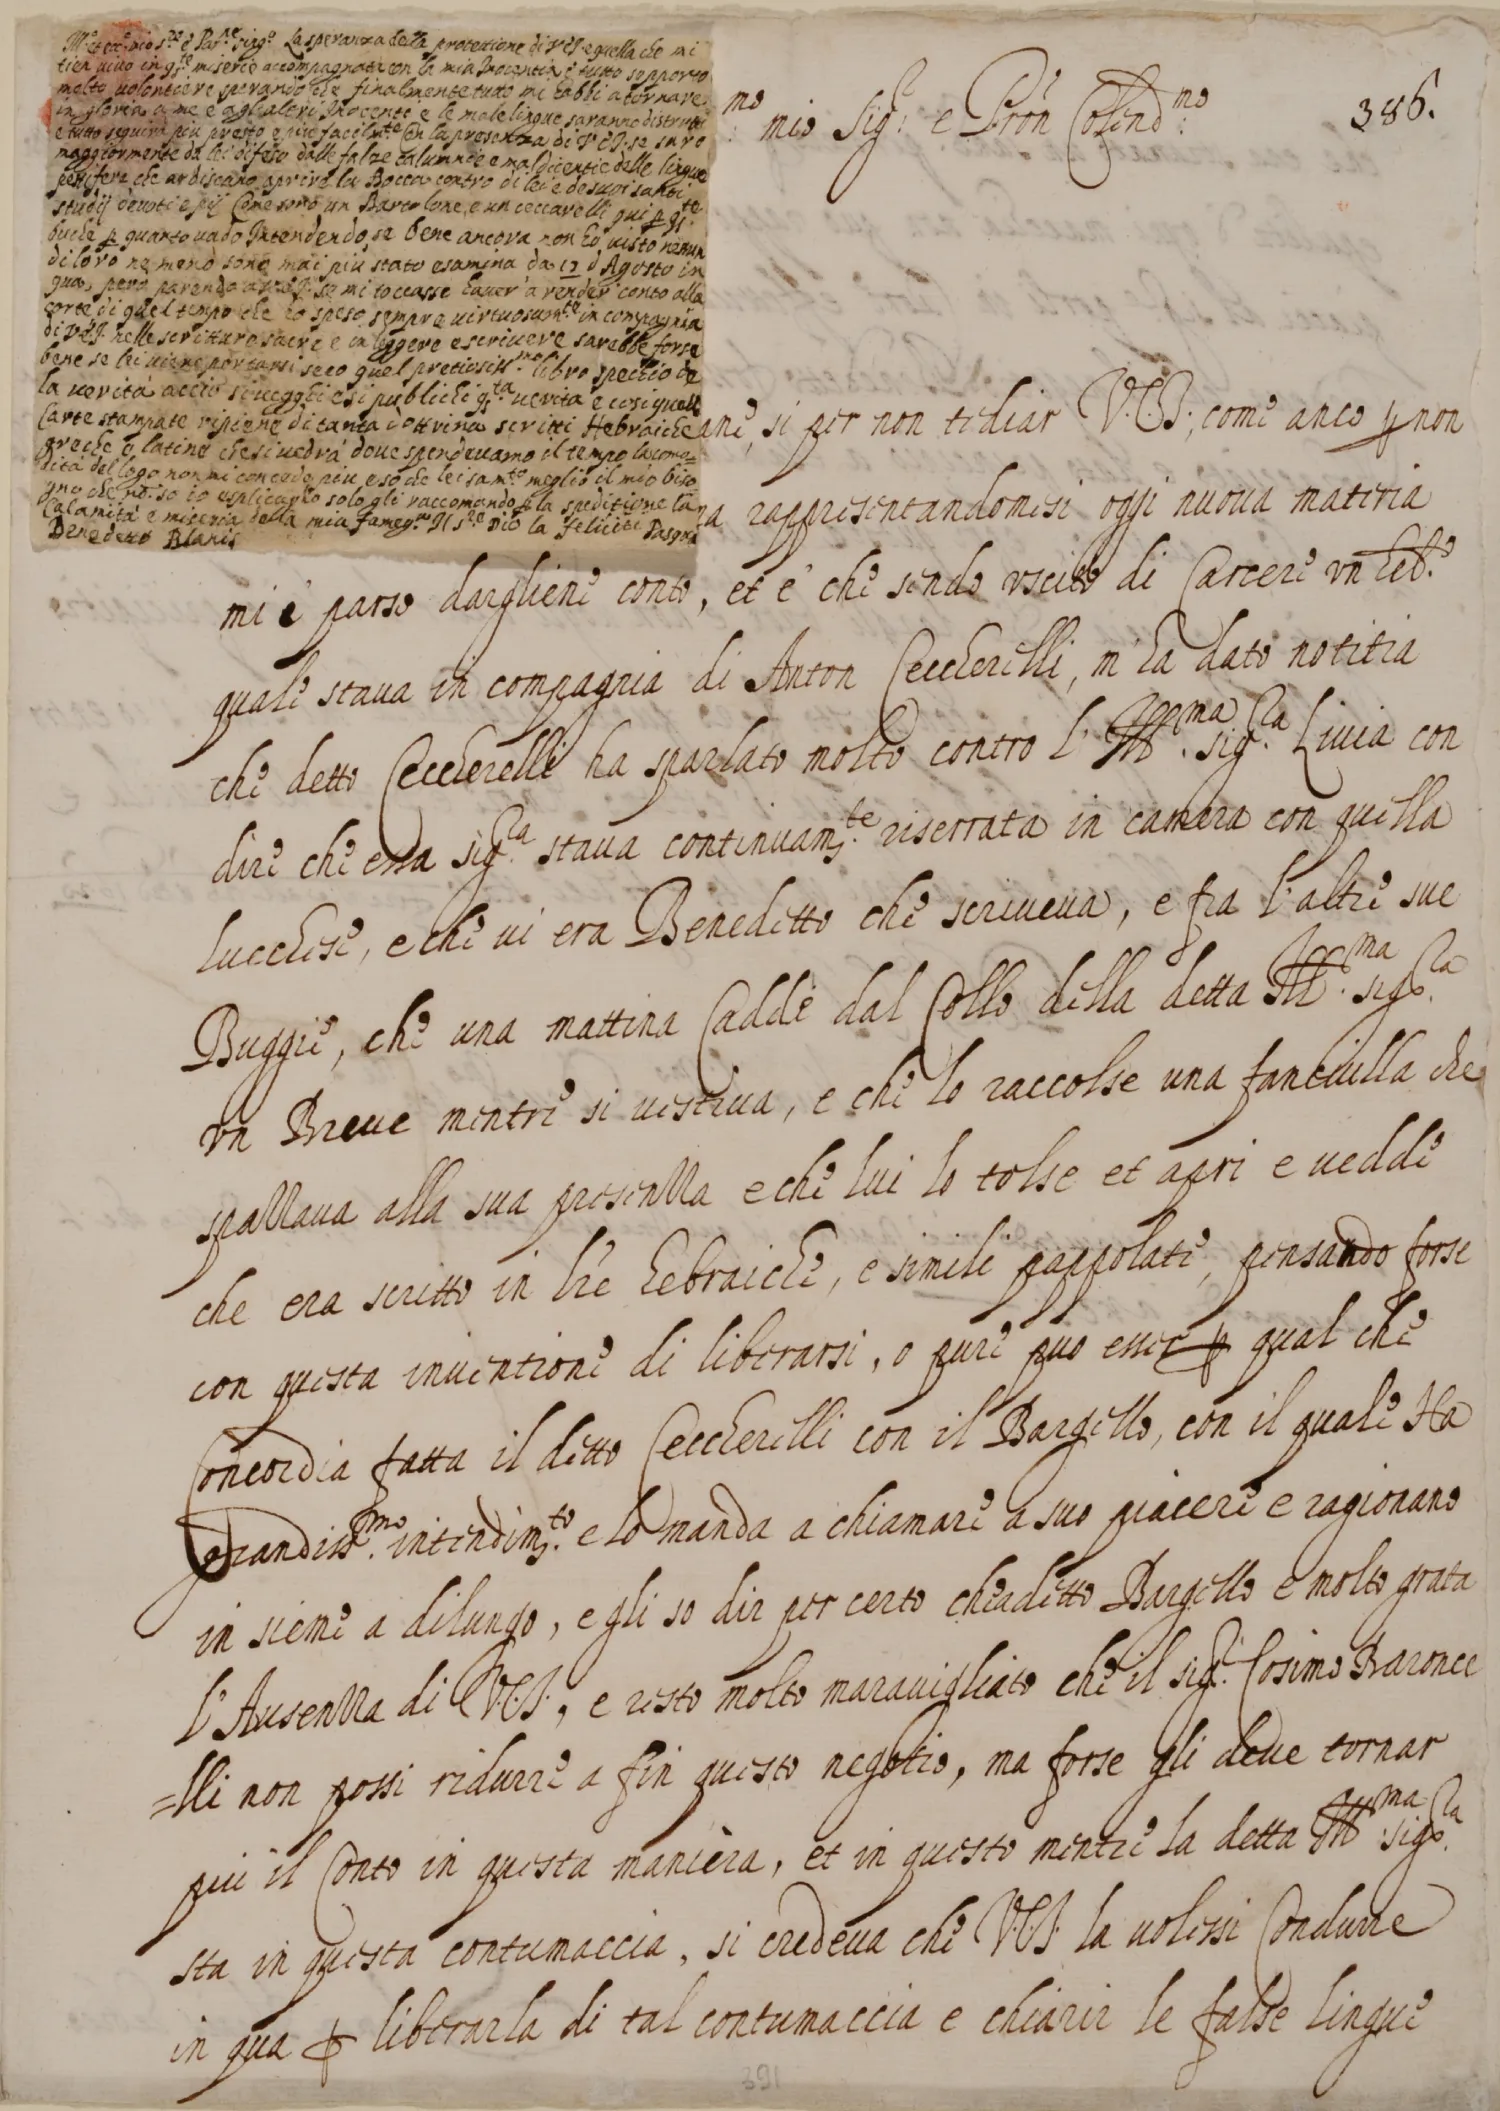 M.to et ecc.e mio s.re e Pat.ne sing.o La speranza della protettione di V.E.I. e quella che mi
tien uiuo in q.te miserie accompagnata con la mia Inocentia e tutto sopporto
molto uolontiere sperando che finalmente tutto mi habbi a tornare
in gloria a me e agli altri Inocente e le male lingue saranno distrutti
e tutto seguirà piu presto e piu facilm.te con la presenza di V.E.I. se sarò
maggiormente da lei difeso dalle false calumnie e maldicentie delle lingue
pestifere che ardiscano aprire la Bocca contro di lei e de suoi santi
studij deuoti e pij Come sono un Bartolone, e un ceccarelli qui p q.te
buche p quanto uado Intendendo, se bene ancora non ho uisto nessun
di loro ne meno sono mai piu stato esamina da 17 d'Agosto in
qua, pero parendo a V.E.I. se mi toccasse hauer a render conto alla
corte di quel tempo che ho speso sempre uirtuosam.te in compagnia
di V.E.I. nelle scritture sacre e in leggere e scriuere sarebbe forse
bene se lei uiene portarsi seco quel pretiosiss.mo libro specchio de
la uerità accio si uegghi e si publichi q.ta uerità e cosi quelle
Carte stampate ripiene di tanta dottrina scritti Hebraiche
greche e latine che si uedrà doue spendeuamo il tempo la como=
dità del logo non mi concede piu, e so che lei sa m.to meglio il mio biso
gno che no so io esplicarlo solo gli raccomando p la speditione la
Calamità e miseria della mia fameg.a Il s.re Dio la feliciti Pasqua
Benedetto Blanis
mo mio Sig.r e Pròn Colend.mo 386.
ane, si per non tediar V.E.I., come anco p non
ra rappresentandomesi oggi nuoua materia
mi è parso dargliene conto, et e che sendo uscito di Carcere un heb.o
quale staua in compagnia di Anton Ceccherelli, m'ha dato notitia
che detto Ceccherelli ha sparlato molto contro l'Ill.ma sig.ra Liuia con
dire che essa sig.ra staua continuam.te riserrata in camera con quella
lucchese, e che ui era Benedetto che scriueua, e fra l'altre sue
Buggie, che una mattina Cadde dal Collo della detta Ill.ma sig.ra
un Breue mentre si uestiua, e che lo raccolse una fanciulla che
spazzaua alla sua presenza e che lui lo tolse et aprì e uedde
che era scritto in l're hebraiche, e simili pappolate, pensando forse
con questa inuentione di liberarsi, o pure puo esser p qual che
Concordia fatta il detto Ceccherelli con il Bargello, con il quale Ha
grandiss.mo intendim.to e lo manda a chiamare a suo piacere e ragionano
in sieme a dilungo, e gli so dir per certo che a detto Bargello e molto grata
l'Ausenza di V.E.I., e resto molto marauigliato che il sig.r Cosimo Baronce
=lli non possi ridurre a fin questo negotio, ma forse gli deue tornar
piu il Conto in questa maniera, et in questo mentre la detta Ill.ma sig.ra
sta in questa contumaccia, si credeua che V.E.I. la uolessi Condurre
in qua p liberarla di tal contumaccia e chiarir le false lingue
391